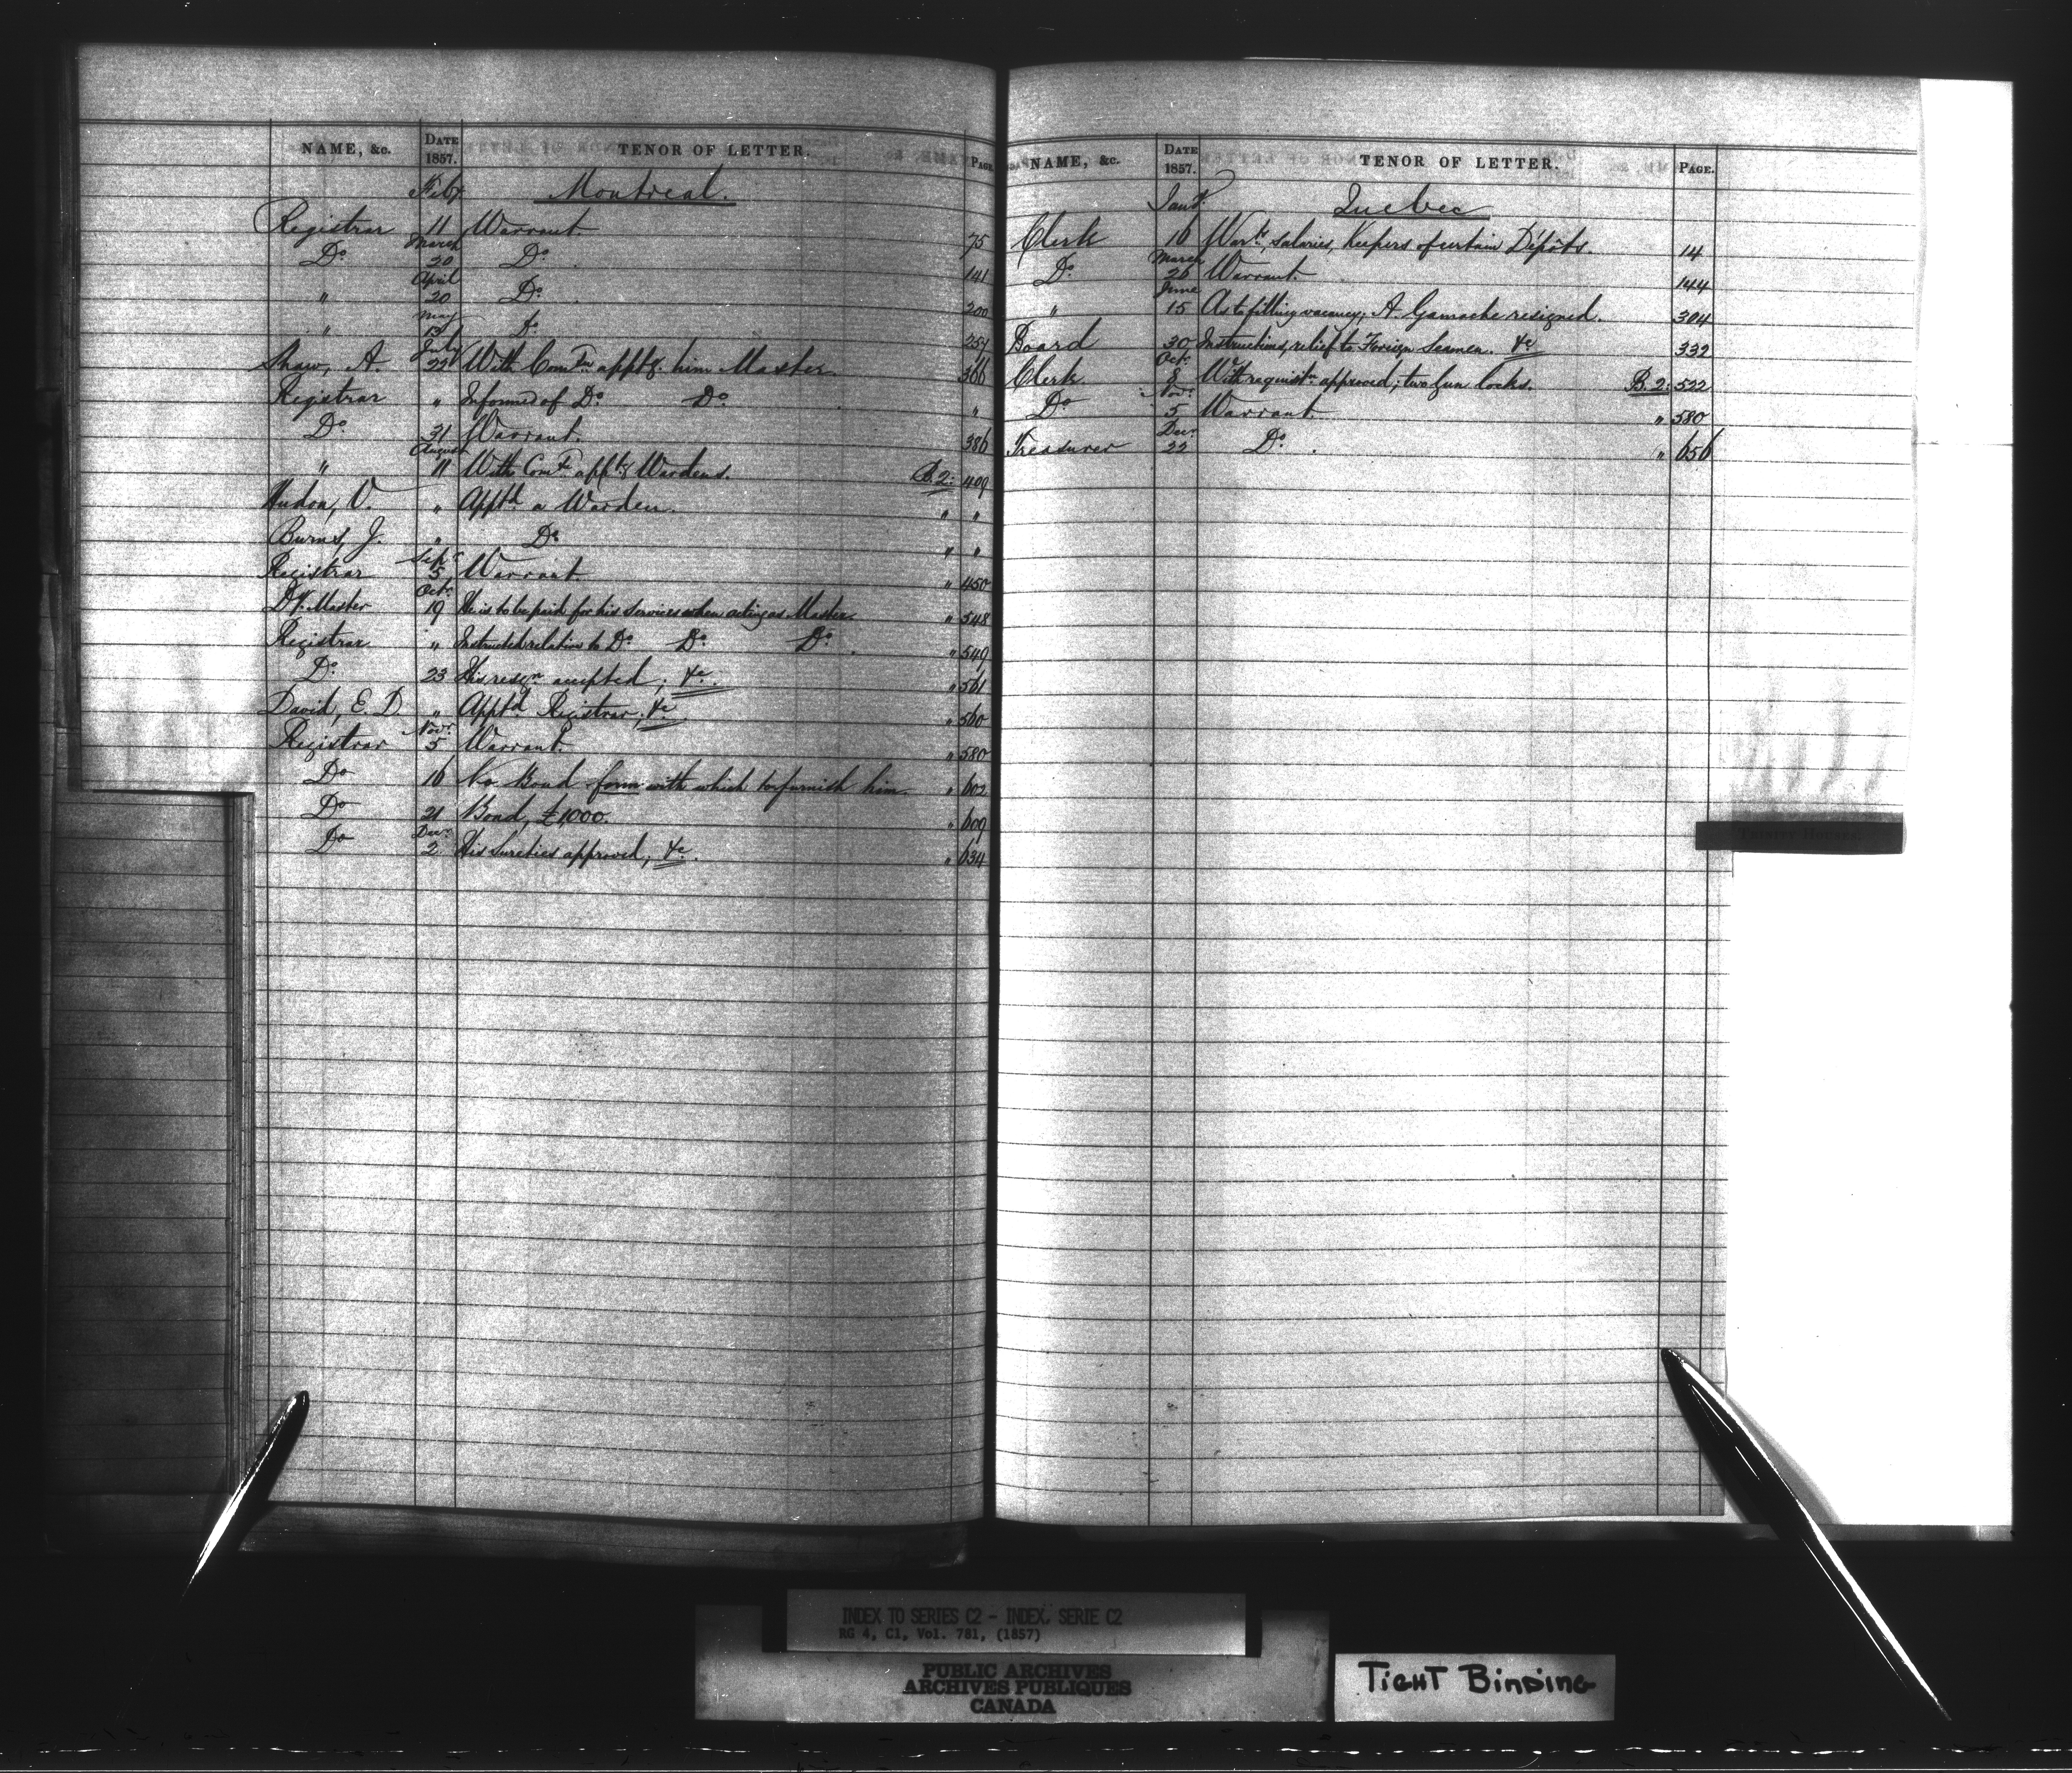 NAME, &c. DATE 1857. TENOR OF LETTER. PAGE
Feby Montreal.
Registrar 11 Warrant. 75
Do March 20 Do. 141
" April 20 Do. 200
" May 13 Do. 251
Shaw, A. July 22 With Comon apptg. him Master. 366
Registrar " Informed of Do. Do. "
Do 31 Warrant. 386
" August 11 With Comn. apptg Wardens. B.2: 409
Hudon, V. " Apptd a Warden. " "
Burns, J. " Do " "
Registrar Sept. 5 Warrant " 450
Dy. Master Octr. 19 He is to be paid for his services when acting as Master. " 548
Registrar " Instructed relative to Do. Do. Do. " 549
Do. 23 His resgn. accepted; &c. " 561
David, E. D. " Apptd. Registrar; &c " 560
Registrar Novr. 5 Warrant. " 580
Do 16 No Bond form with which to furnish him. " 602
Do 21 Bond, £1,000. " 609
Do Decr. 2 His Sureties approved, &c. " 634
NAME, &c. DATE 1857. TENOR OF LETTER. PAGE.
Jany. Quebec
Clerk 16 Warts. salaries, Keepers of certain Depôts. 14
Do. March 26 Warrant. 144
" June 15 As to filling vacancy; A. Gamache resigned. 304
Board 30 Instructions, relief to Foreign Seamen. &c 332
Clerk Octr. 8 With requistn. approved; two Gun locks. B.2: 522
Do Novr. 5 Warrant " 580
Treasurer Decr. 22 Do. " 656
INDEX TO SERIES C2 - INDEX, SERIE C2
RG 4, C1, Vol. 781, (1857)
PUBLIC ARCHIVES
ARCHIVES PUBLIQUES
CANADA
TIGHT BINDING